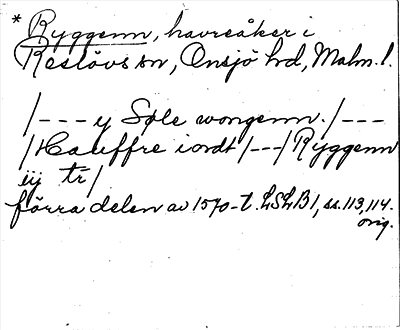 * Ryggenn, havreåker i
Reslövs sn, Onsjö hd, Malm. l.
/--- y Søle wongenn. /---
/Hauffre iordt/---/ Ryggenn
iij tr/
förra delen av 1570-t. LSLB1, ss. 113, 114.
orig.